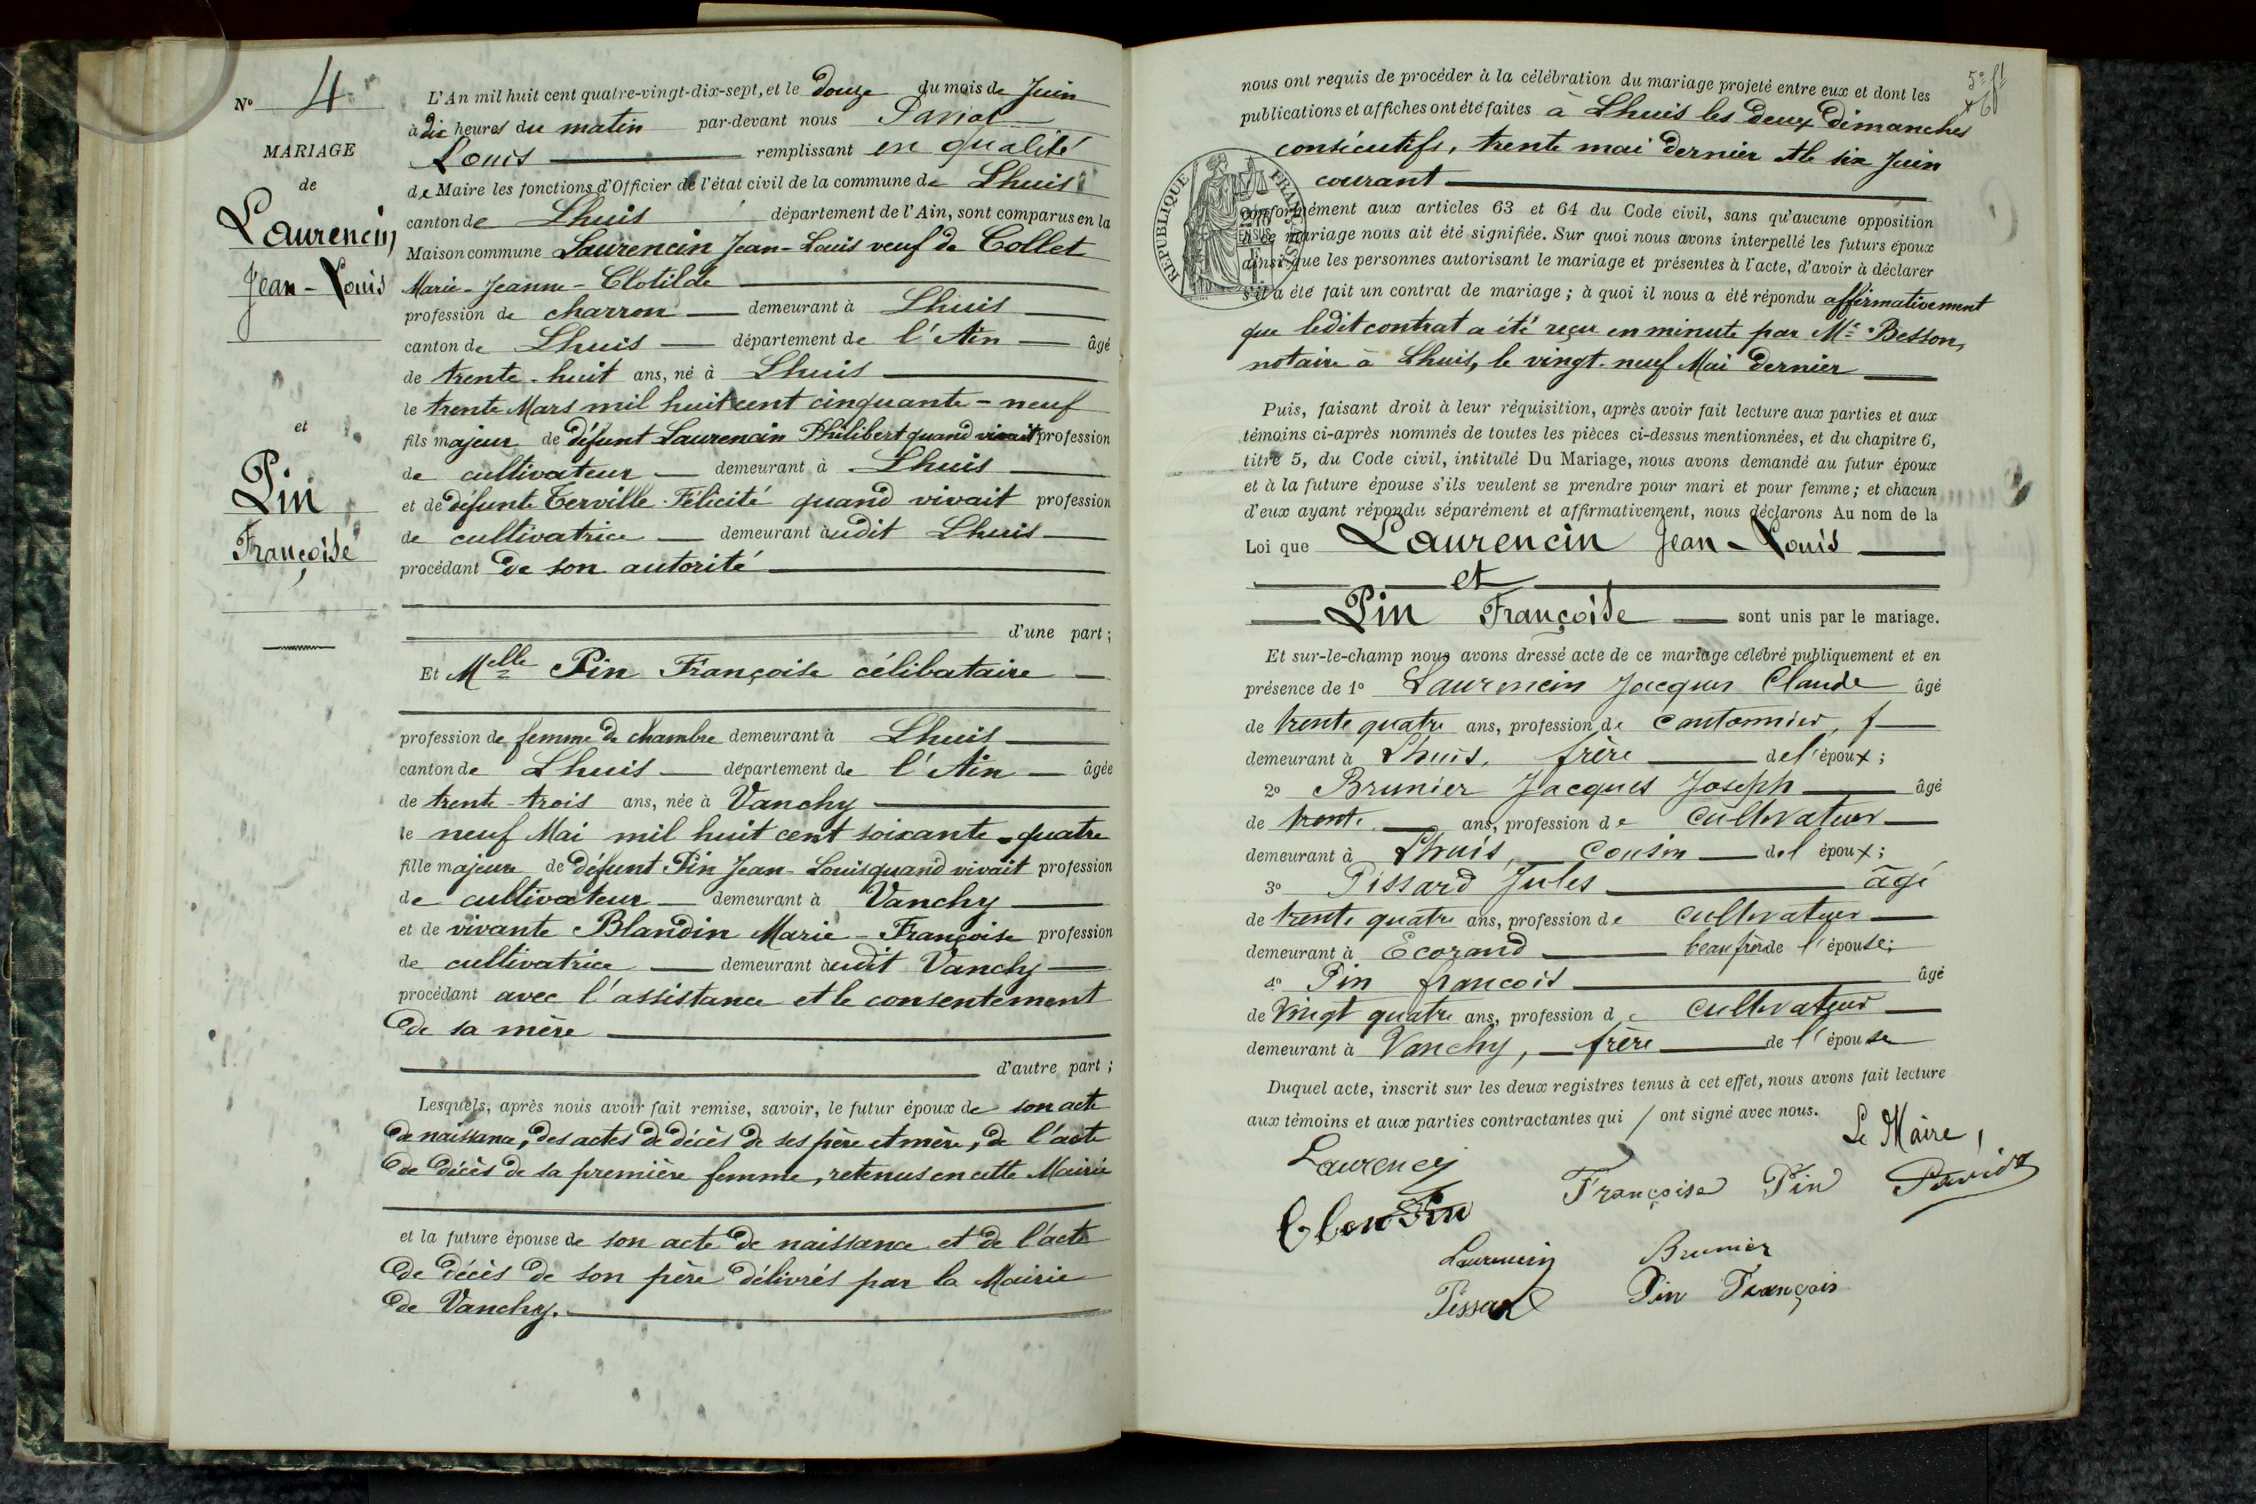 N° 4
MARIAGE
de
Laurencin
Jean-Louis
et
Pin
Françoise
L'An mil huit cent quatre-vingt-dix-sept, et le douze du mois de Juin
à dix heures du matin par-devant nous
Louis remplissant en qualité
de Maire les fonctions d'Officier de l'état civil de la commune de Lhuis
canton de Lhuis département de l'Ain, sont comparus en la
Maison commune Laurencin Jean-Louis veuf de Collet
Marie-Jeanne-Clotilde
profession de charron demeurant à Lhuis
canton de Lhuis département de l'Ain âgé
de trente-huit ans, né à Lhuis
le trente Mars mil huit cent cinquante-neuf
fils majeur de défunt Laurencin Philibert quand vivait profession
de cultivateur demeurant à Lhuis
et de défunte Terville Félicité quand vivait profession
de cultivatrice demeurant audit Lhuis
procédant de son autorité
d'une part;
Et Melle Pin Françoise célibataire
profession de femme de chambre demeurant à Lhuis
canton de Lhuis département de l'Ain âgée
de trente-trois ans, née à Vanchy
le neuf Mai mil huit cent soixante-quatre
fille majeure de défunt Pin Jean-Louis quand vivait profession
de cultivateur demeurant à Vanchy
et de vivante Blandin Marie-Françoise profession
de cultivatrice demeurant audit Vanchy
procédant avec l'assistance et le consentement
de sa mère
d'autre part;
Lesquels, après nous avoir fait remise, savoir, le futur époux de son acte
de naissance, des actes de décès de ses père et mère, de l'acte
de décès de sa première femme, retenus en cette Mairie
et la future épouse de son acte de naissance et de l'acte
de décès de son père délivrés par la Mairie
de Vanchy.
nous ont requis de procéder à la célébration du mariage projeté entre eux et dont les
publications et affiches ont été faites à Lhuis les deux dimanches
consécutifs, trente mai dernier et le six Juin
courant
RÉPUBLIQUE FRANÇAISE
conformément aux articles 63 et 64 du Code civil, sans qu'aucune opposition
à ce mariage nous ait été signifiée. Sur quoi nous avons interpellé les futurs époux
ainsi que les personnes autorisant le mariage et présentes à l'acte, d'avoir à déclarer
s'il a été fait un contrat de mariage; à quoi il nous a été répondu affirmativement
que ledit contrat a été reçu en minute par Me Besson,
notaire à Lhuis, le vingt-neuf Mai dernier
Puis, faisant droit à leur réquisition, après avoir fait lecture aux parties et aux
témoins ci-après nommés de toutes les pièces ci-dessus mentionnées, et du chapitre 6,
titre 5, du Code civil, intitulé Du Mariage, nous avons demandé au futur époux
et à la future épouse s'ils veulent se prendre pour mari et pour femme; et chacun
d'eux ayant répondu séparément et affirmativement, nous déclarons Au nom de la
Loi que Laurencin Jean-Louis
et
Pin Françoise sont unis par le mariage.
Et sur-le-champ nous avons dressé acte de ce mariage célébré publiquement et en
présence de 1° Laurencin Jacques Claude âgé
de trente quatre ans, profession de cantonnier, f
demeurant à Lhuis, frère de l'époux;
2° Brunier Jacques Joseph âgé
de trente ans, profession de cultivateur
demeurant à Lhuis, cousin de l'époux;
3° Pissard Jules âgé
de trente quatre ans, profession de cultivateur
demeurant à Ecorand beau frère de l'épouse;
4° Pin francois âgé
de vingt quatre ans, profession de cultivateur
demeurant à Vanchy, frère de l'épouse
Duquel acte, inscrit sur les deux registres tenus à cet effet, nous avons fait lecture
aux témoins et aux parties contractantes qui / ont signé avec nous.
Le Maire,
Laurencin
Françoise Pin
Pin
Laurencin Brunier
Pissard Pin François